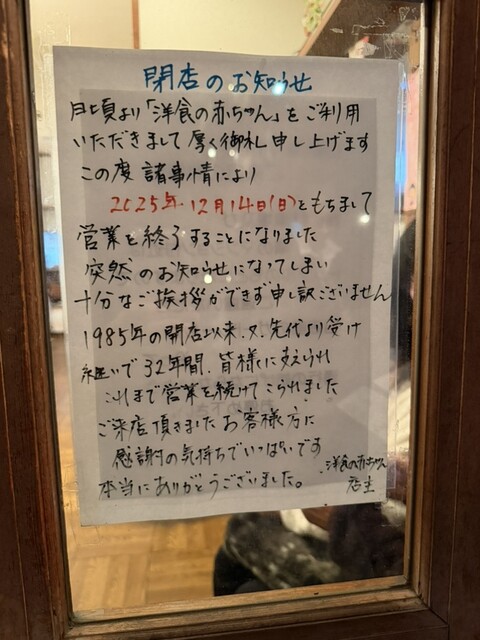 閉店のお知らせ
日頃より「洋食の赤ちゃん」をご利用
いただきまして厚く御礼申し上げます
この度諸事情により
2025年12月14日(日)ともちまして
営業を終了することになりました
突然のお知らせになってしまい
十分なご挨拶ができず申し訳ございません
1985年の開店以来、又、先代より受け
継いで32年間、皆様に支えられ
これまで営業を続けてこられました
ご来店頂きましたお客様方に
感謝の気持ちでいっぱいです
本当にありがとうございました。
洋食の赤ちゃん
店主